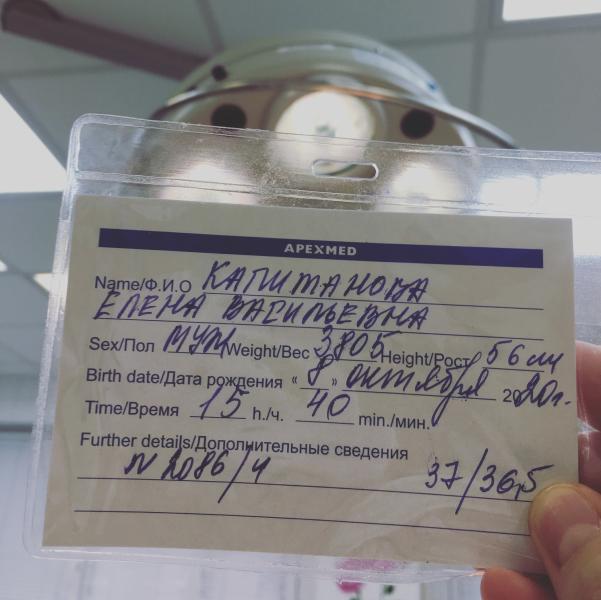 APEXMED
Name/Ф.И.О КАПИТАНОВА
ЕЛЕНА ВАСИЛЬЕВНА
Sex/Пол МУЖ Weight/Вес 3805 Height/Рост 56 см
Birth date/Дата рождения « 8 » октября 2020г.
Time/Время 15 h./ч. 40 min./мин.
Further details/Дополнительные сведения
N 2086/4 37/36,5